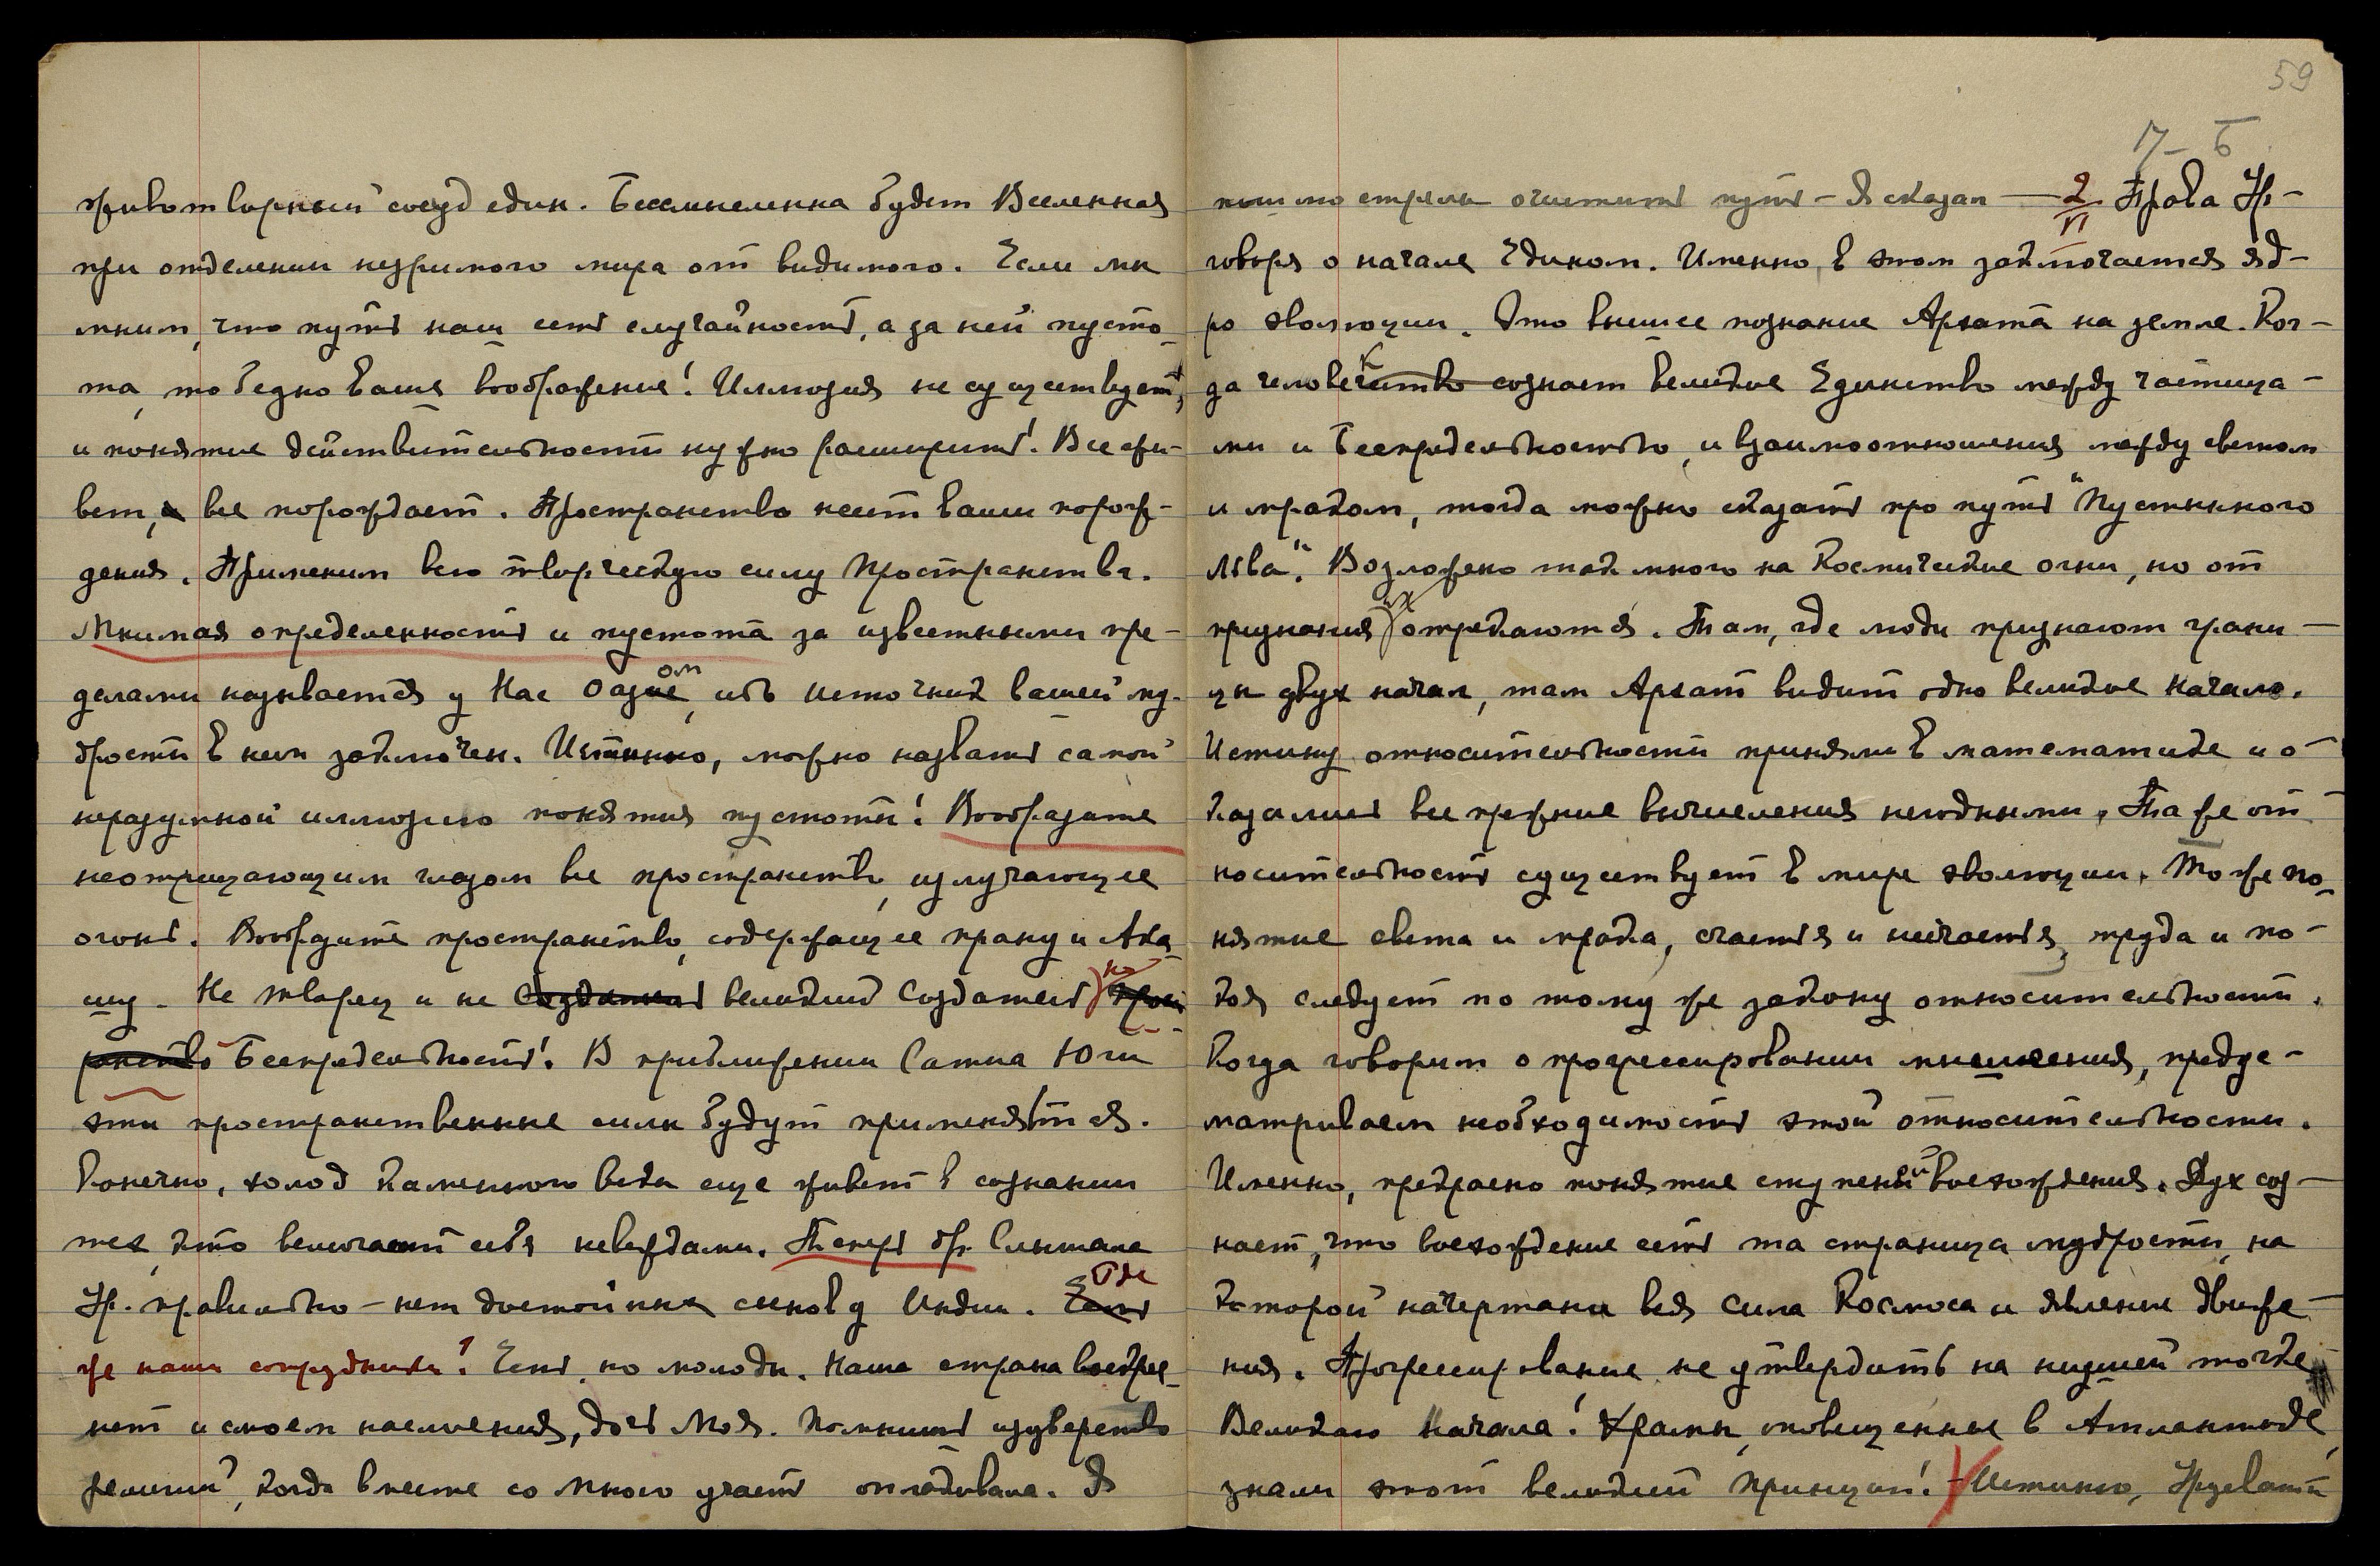 животворный сосуд един. Бессмысленна будет Вселенная
при отделении незримого мира от видимого. Если мы
мним, что путь наш есть случайность, а за ней пусто-
та, то бедно ваше воображение! Иллюзия не существует,
и понятие действительности нужно расширить! Все жи-
вет, все порождает. Пространство несет ваши порож-
дения. Применим всю творческую силу Пространства.
Мнимая определенность и пустота за известными пре-
делами называется у Нас Оазисом, ибо источник вашей му-
дрости в нем заключен. Истинно, можно назвать самой
неразумной иллюзию понятия пустоты! Вообразите
неотрицающим глазом все пространство, излучающее
огонь. Вообразите пространство, содержащее прану и Ака-
шу. Не творец и не великий Создатель, но
Беспредельность! В приближении Сатиа Юги
эти пространственные силы будут применяться.
Конечно, холод каменного века еще живет в сознании
тех, кто величает себя невеждами. Теперь др. Синтана
Ур. правильно – нет достойных сынов у Индии. Где
же наши сотрудники? Есть, но молоды. Наша страна воскрес-
нет и смоем насмешки, дочь Моя. Помнишь изуверство
религий, когда вместе со Мною участь оплакивала. Я
59
7 – Б
помню стрелы очистить путь – Я сказал — 2/VI Права Ур.
говоря о начале Едином. Именно, в этом заключается яд-
ро эволюции. Это высшее познание Архата на земле. Ког-
да человек сознает великое Единство между частица-
ми и Беспредельностью, и взаимоотношения между светом
и мраком, тогда можно сказать про путь "Пустынного
Льва". Возложено так много на Космические огни, но от
признания их отрекаются. Там, где люди признают грани-
цы двух начал, там Архат видит одно великое Начало.
Истину относительности приняли в математике и о-
казались все прежние вычисления негодными. Та же от-
носительность существует в мире эволюции. То же по-
нятие света и мрака, счастья и несчастья, труда и по-
коя следует по тому же закону относительности.
Когда говорим о прогрессировании мышления, предус-
матриваем необходимость этой относительности.
Именно, прекрасно понятие ступеней восхождения. Дух соз-
нает, что восхождение есть та страница мудрости, на
которой начертаны вся сила Космоса и явление движе-
ния. Прогрессирование не утвердить на низшей точке
Великого Начала! Храмы, посвященные в Атлантиде,
знали этот великий принцип! – Истинно, Урусвати